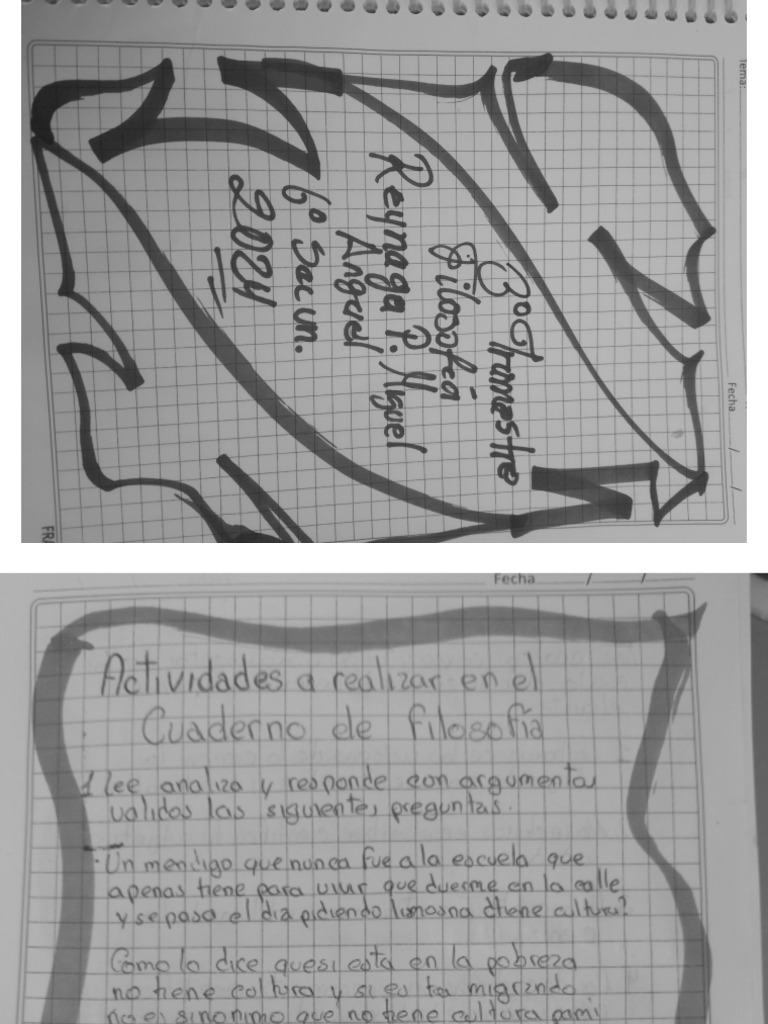 Tema:
Fecha / /
3º Trimestre
Filosofía
Reynaga P. Miguel
Angel
6º Secun.
2024
Fecha / /
Actividades a realizar en el
Cuaderno de filosofía
1 lee analiza y responde con argumentos
validos las siguientes preguntas.
Un mendigo que nunca fue a la escuela que
apenas tiene para vivir que duerme en la calle
y se pasa el dia pidiendo limosna tiene cultura?
Como lo dice que si esta en la pobreza
no tiene cultura y si es ta migrando
no es sinonimo que no tiene cultura